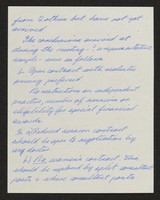 from Dothie but have not yet
arrived
The conclusions arrived at
during the meeting - a representative
sample - were as follows
1. Open contract with
being preferred
No restrictions on independent
practice, number of sessions or
eligibility for special financial
awards.
2. Reduced session contract
should be open to negotiation by
any doctor
The contract. This
should be replaced by split consultant
posts & where consultant posts